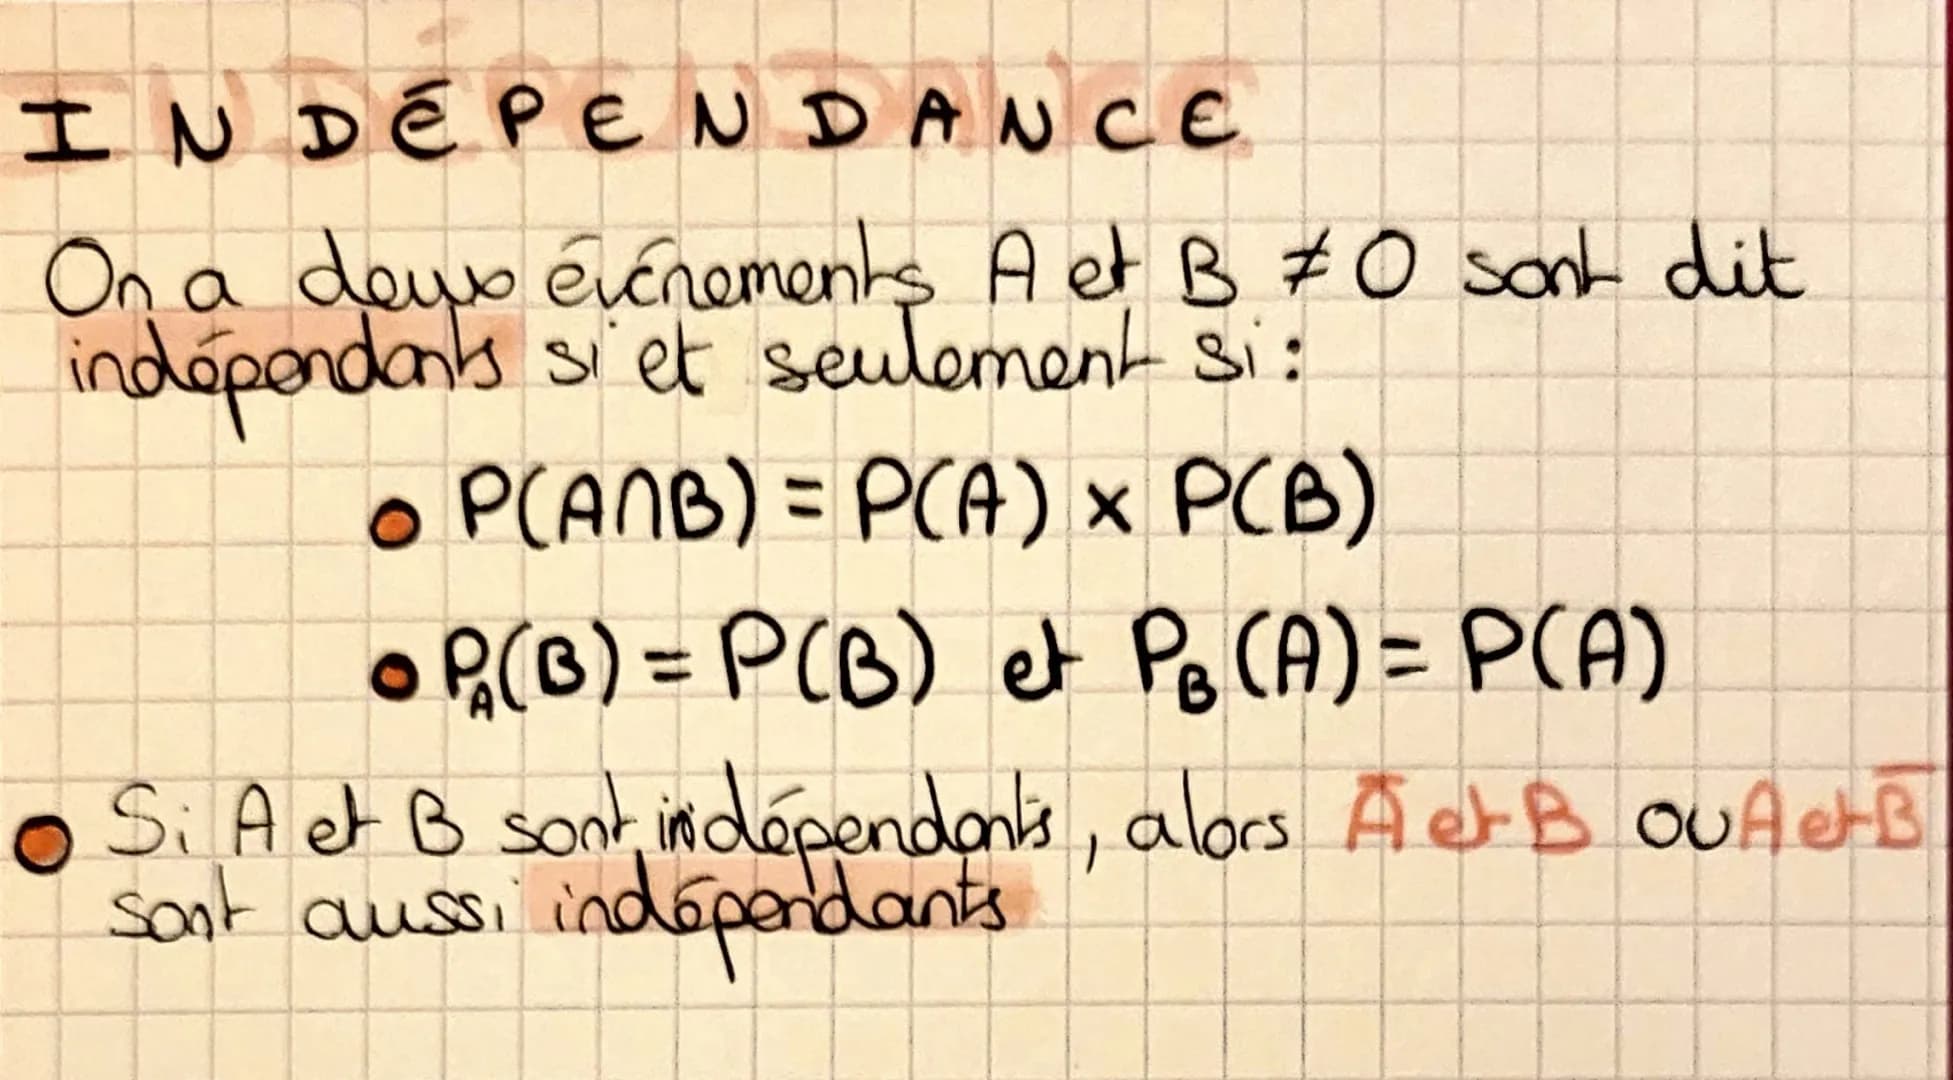 INDÉPENDANCE
On a deux événements A et B ≠ 0 sont dit
indépendants si et seulement si :
• P(A∩B) = P(A) x P(B)
• P_A(B) = P(B) et P_B(A) = P(A)
• Si A et B sont indépendants, alors Ā et B ou A et B̄
sont aussi indépendants